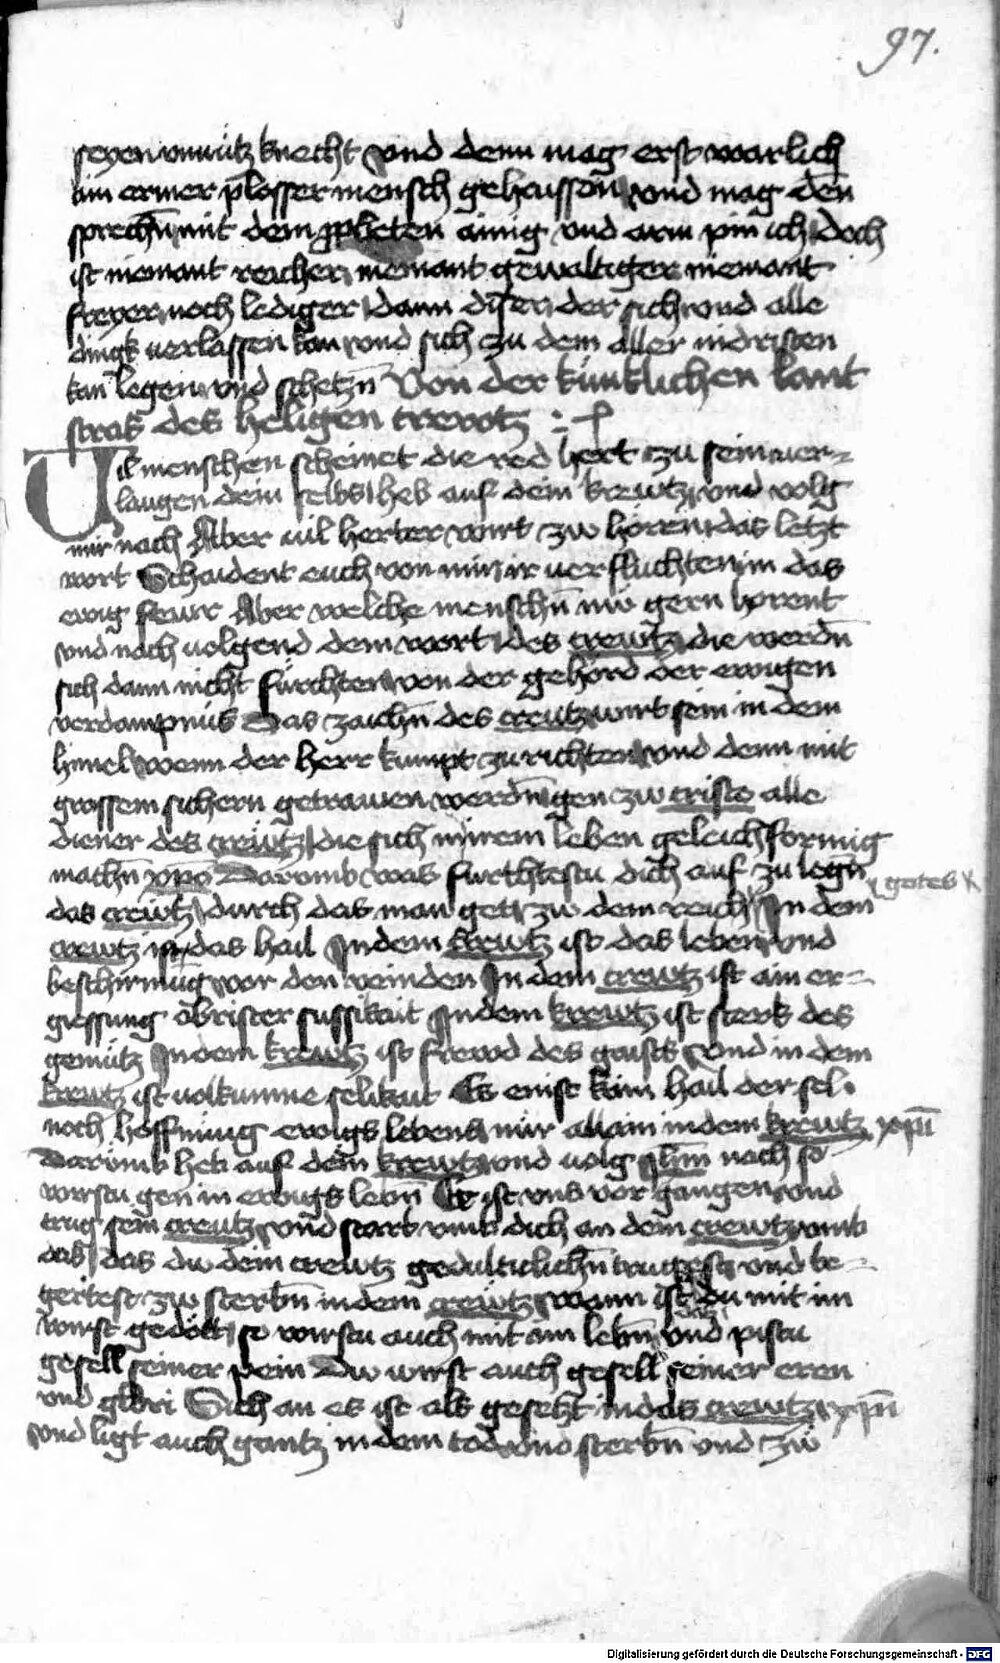 97.
seyen vnnütz knecht vnd denn mag erst warlich
ain ermer plosser mensch gehaissen vnd mag den̄
sprechn̄ mit dem propheten ainig vnd arm pin ich Doch
ist niemant reicher niemant gewaltiger niemant
freyer noch lediger dann diser der sich vnd alle
dingk uerlassen kan vnd sich zu dem aller nidristen
kan legen vnd schetzn̄ Von der künklichen lant
stras des heligen crewtz
Uil menschen scheinet die red hert zu sein uer-
laugen dein selbs heb auf dein krewtz vnd volg
mir nach Aber uil herter wirt zw hören das letzt
wort Schaident euch von mir ir uerfluchten in das
ewig fewr Aber welche menschn̄ nw gern hörent
vnd noch uolgend dem wort des crewtz die werdn̄
sich dann nicht fürchten von der gehörd der ewigen
verdampnüs Das zaichn̄ des crewtz wirt sein in dem
himel wenn der herr kumpt zu richten vnd denn mit
grossem sichern getrawen werdn̄ gen zw cristo alle
diener des crewtz die sich mit irem leben geleichformig
machn̄ xpō Darumb was furchtestu dich auf zu legn̄
das crewtz durch das man get zw dem reich gotes In dem
crewtz ist das hail In dem krewtz ist das leben vnd
beschirmūg vor den veinden In dem crewtz ist ain er-
giessung öbrister sussikait In dem krewtz ist sterk des
gemütz In dem krewtz ist frewd des gaists vnd in dem
krewtz ist uolkumne selikait Es enist kain hail der sel
noch hoffnung ewigs lebens nur allain in dem krewtz xp̄i
Darumb heb auf dein krewtz vnd uolg ihm nach so
wirstu gen in ewigs lebn̄ Er ist vns vor gangen vnd
trug sein crewtz vnd starb vmb dich an dem crewtz vmb
das das du dein crewtz gedultiklichn̄ tragest vnd be-
gertest zw sterbn̄ in dem crewtz Wann ist du mit im
wirst gedött so wirstu auch mit im lebn̄ vnd pistu
gesell seiner pein Dw wirst auch gesell seiner eren
vnd glori Sich an es ist als gesetzt in das crewtz xp̄i
vnd ligt auch gantz in dem tod vnd sterbn̄ vnd zw
Digitalisierung gefördert durch die Deutsche Forschungsgemeinschaft - DFG